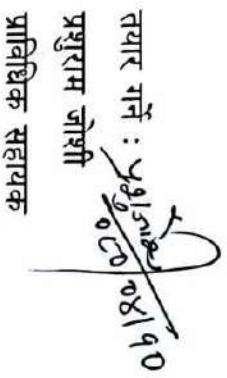 तयार गर्ने :
प्रशुराम जोशी
प्राविधिक सहायक